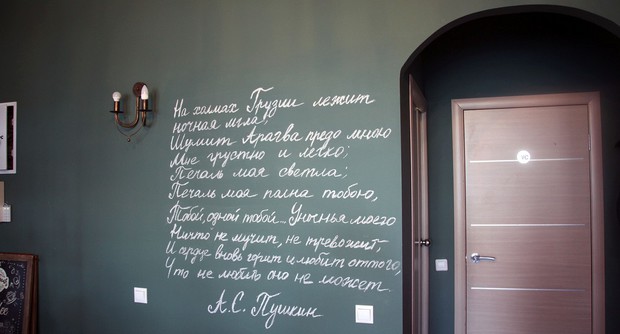 На холмах Грузии лежит
ночная мгла;
Шумит Арагва предо мною
Мне грустно и легко;
Печаль моя светла;
Печаль моя полна тобою,
Тобой, одной тобой... Унынья моего
Ничто не мучит, не тревожит,
И сердце вновь горит и любит оттого,
Что не любить оно не может.
А.С. Пушкин